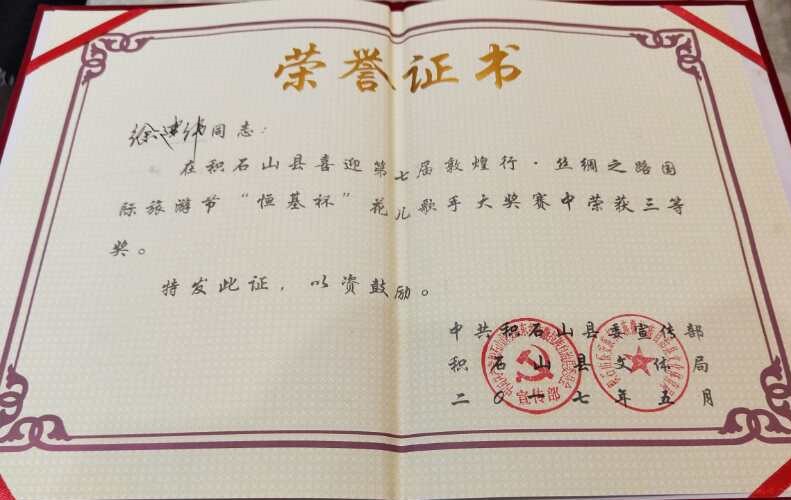 荣誉证书
徐建伟同志：
在积石山县喜迎第七届敦煌行·丝绸之路国
际旅游节“恒基杯”花儿歌手大奖赛中荣获三等
奖。
特发此证，以资鼓励。
中共积石山县委宣传部
积石山县文体局
二0一七年五月
宣传部